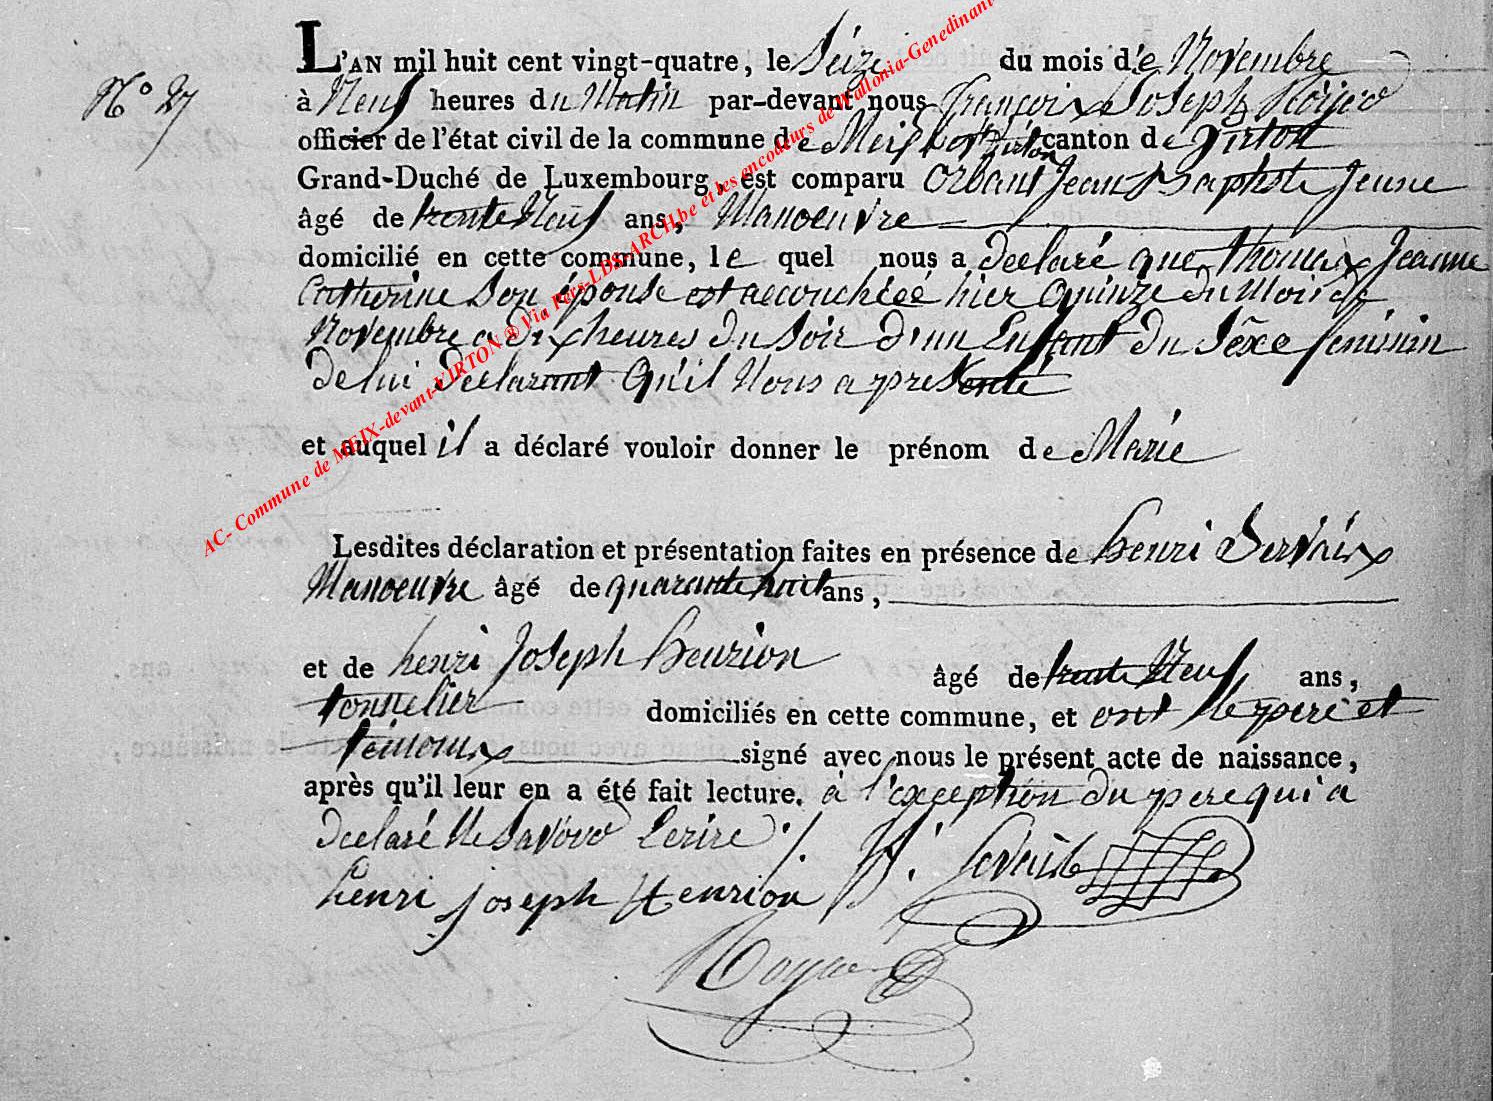 N° 27
L'AN mil huit cent vingt-quatre, le Seize du mois de Novembre
à Neuf heures du Matin par-devant nous françois Joseph
officier de l'état civil de la commune de Meix dt virton canton de virton
Grand-Duché de Luxembourg, est comparu Orban Jean Baptiste Jeune
âgé de trente Neuf ans, Manoeuvre
domicilié en cette commune, le quel nous a declaré que thomas Jeanne
Catherine Son épouse est accouchéé hier quinze du Mois de
Novembre a dix heures du Soir d'un Enfant du Sexe feminin
de lui declarant qu'il Nous a presenté
et auquel il a déclaré vouloir donner le prénom de Marie
Lesdites déclaration et présentation faites en présence de henri Servaix
Manoeuvre âgé de quarante huit ans,
et de henri Joseph henrion âgé de trente Neuf ans,
tonnelier domiciliés en cette commune, et ont le pere et
temoins signé avec nous le présent acte de naissance,
après qu'il leur en a été fait lecture. à l'exception du pere qui a
declaré Ne Savoir Ecrire ./.
henri joseph Henrion H. Servais
AC- Commune de MEIX-devant-VIRTON ® Via Pers-LDS-ARCH.be et les encodeurs de Wallonia-Genedinant